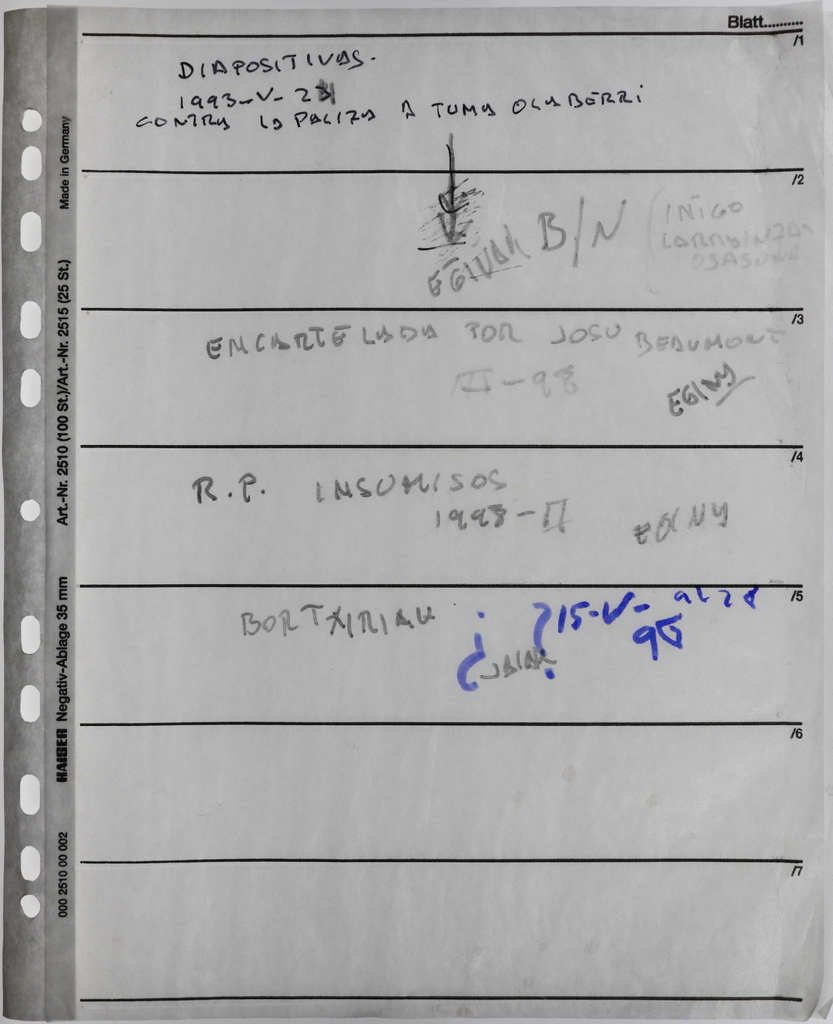 Blatt..........
/1
DIAPOSITIVAS.
1993-V-23
CONTRA LA PALIZA A TUMA OLABERRI
/2
EGINAK B/N
IÑIGO
LARRAINZAR
OSASUNA
/3
ENCARTELADA POR JOSU BEAUMONT
III-98
EGINA
/4
R.P. INSUMISOS
1998-II
EGINA
/5
BORTXIRIAK
¿JAIAK?
15-V-
95
/6
/7
Made in Germany
Art.-Nr. 2510 (100 St.)/Art.-Nr. 2515 (25 St.)
KAISER Negativ-Ablage 35 mm
000 2510 00 002